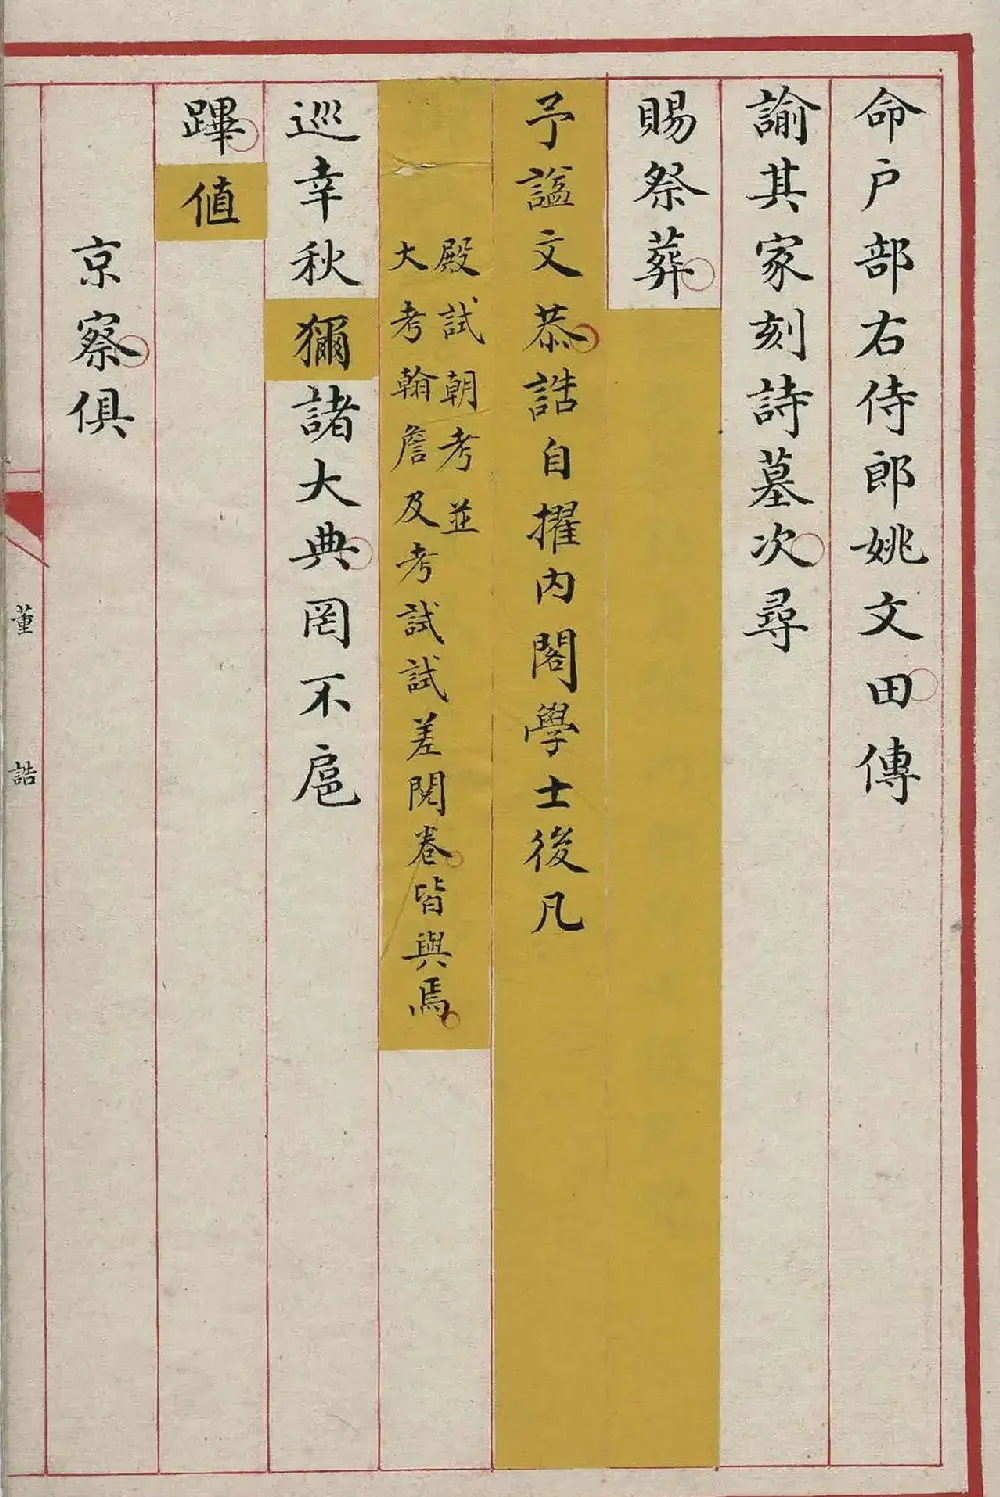 命戶部右侍郎姚文田傳
諭其家刻詩墓次尋
賜祭葬
予謚文恭誥自擢内閣學士後凡
殿試朝考並
大考翰詹及考試試差閱卷皆與焉
巡幸秋獮諸大典罔不扈
蹕值
京察俱
董
誥